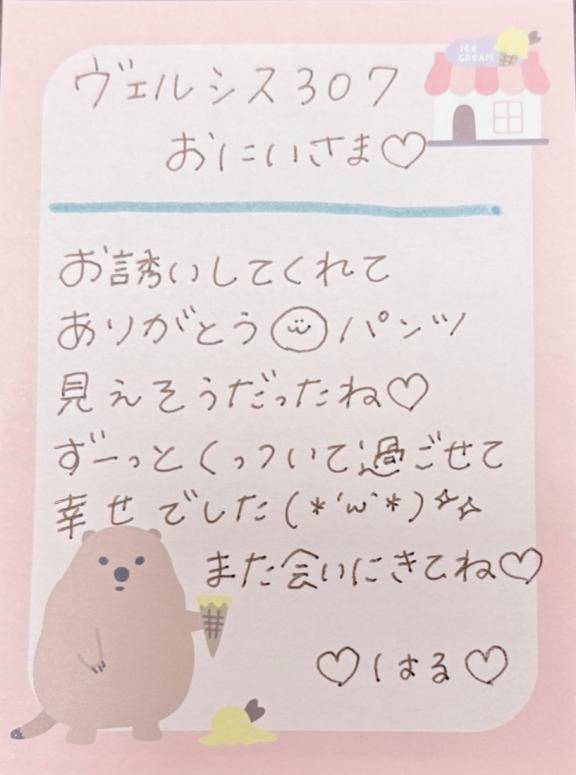 ICE
CREAM
ヴェルシス307
おにいさま♡
お誘いしてくれて
ありがとう パンツ
見えそうだったね♡
ずーっとくっついて過ごせて
幸せでした(*´ω`*)☆☆
また会いにきてね♡
♡はる♡